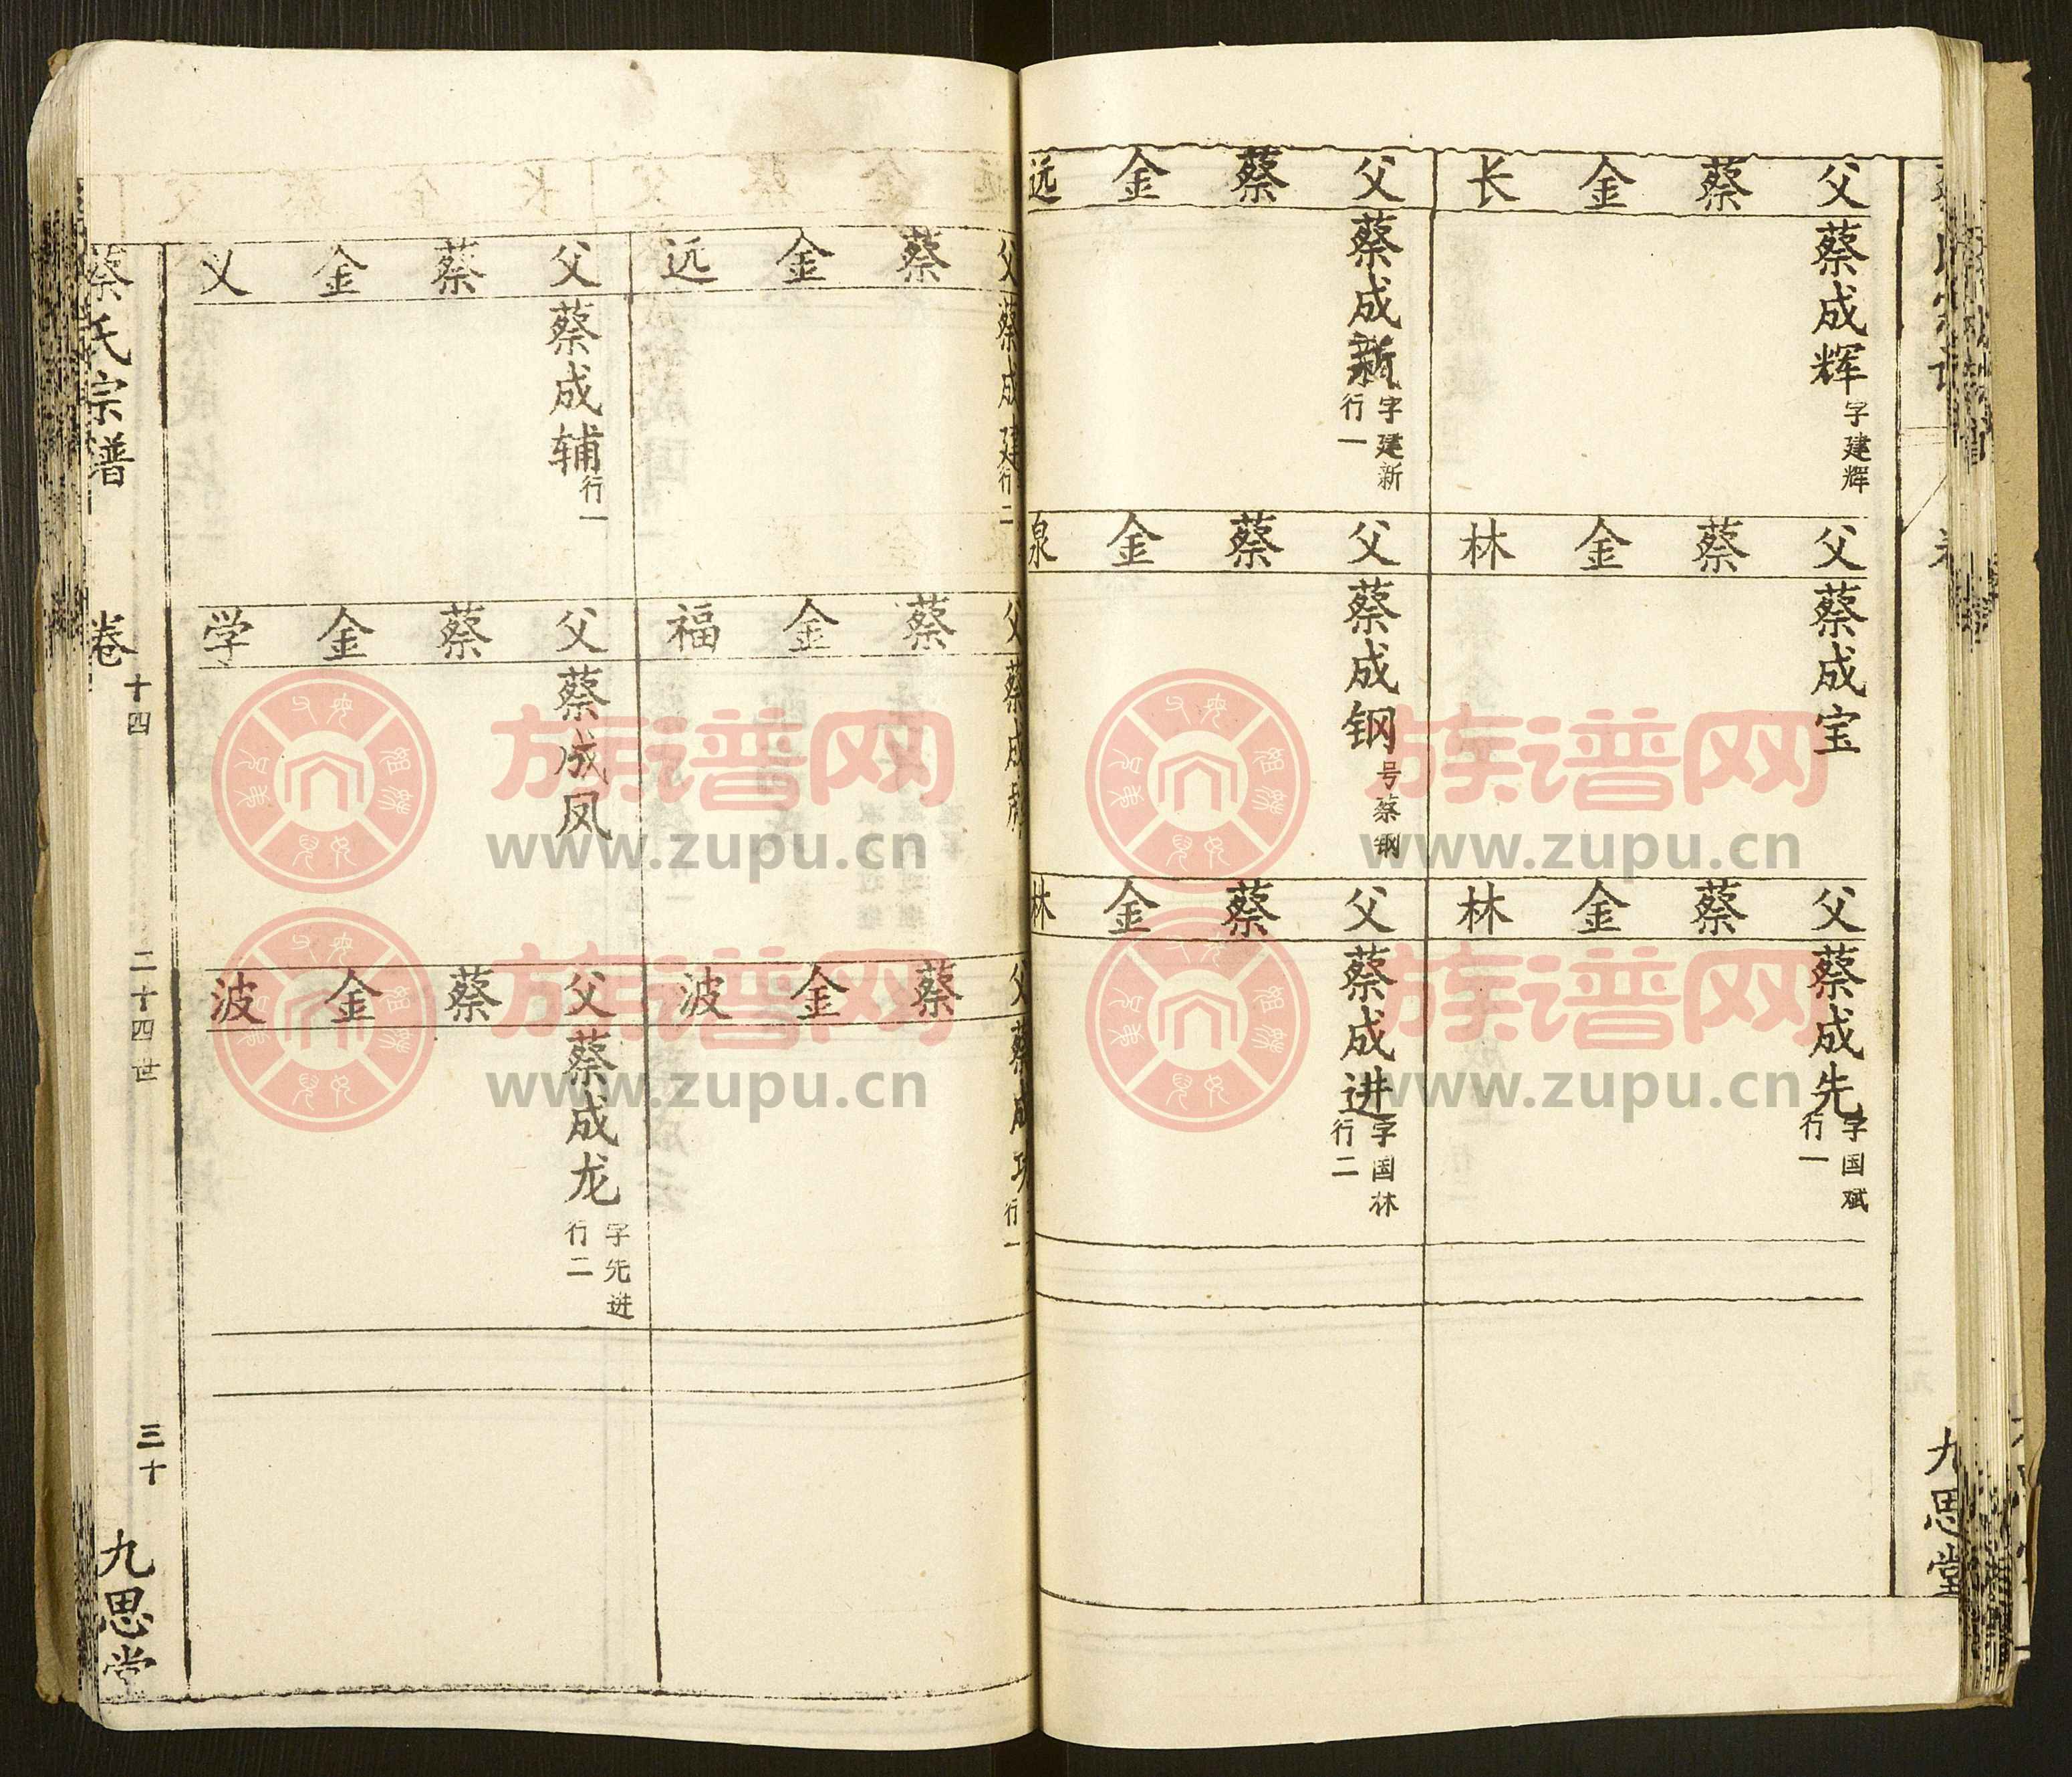 父蔡金长
蔡成辉
字建辉
父蔡金远
蔡成新
字建新
行一
父蔡金林
蔡成宝
父蔡金泉
蔡成钢
号蔡钢
父蔡金林
蔡成先
字国斌
行一
父蔡金林
蔡成进
字国林
行二
九思堂
父蔡金远
蔡成建
行二
父蔡金义
蔡成辅
行一
父蔡金福
蔡成
父蔡金学
蔡成凤
父蔡金波
蔡成功
行一
父蔡金波
蔡成龙
字先进
行二
蔡氏宗谱
卷十四
二十四世
三十
九思堂
族谱网
www.zupu.cn
族谱网
www.zupu.cn
族谱网
www.zupu.cn
族谱网
www.zupu.cn